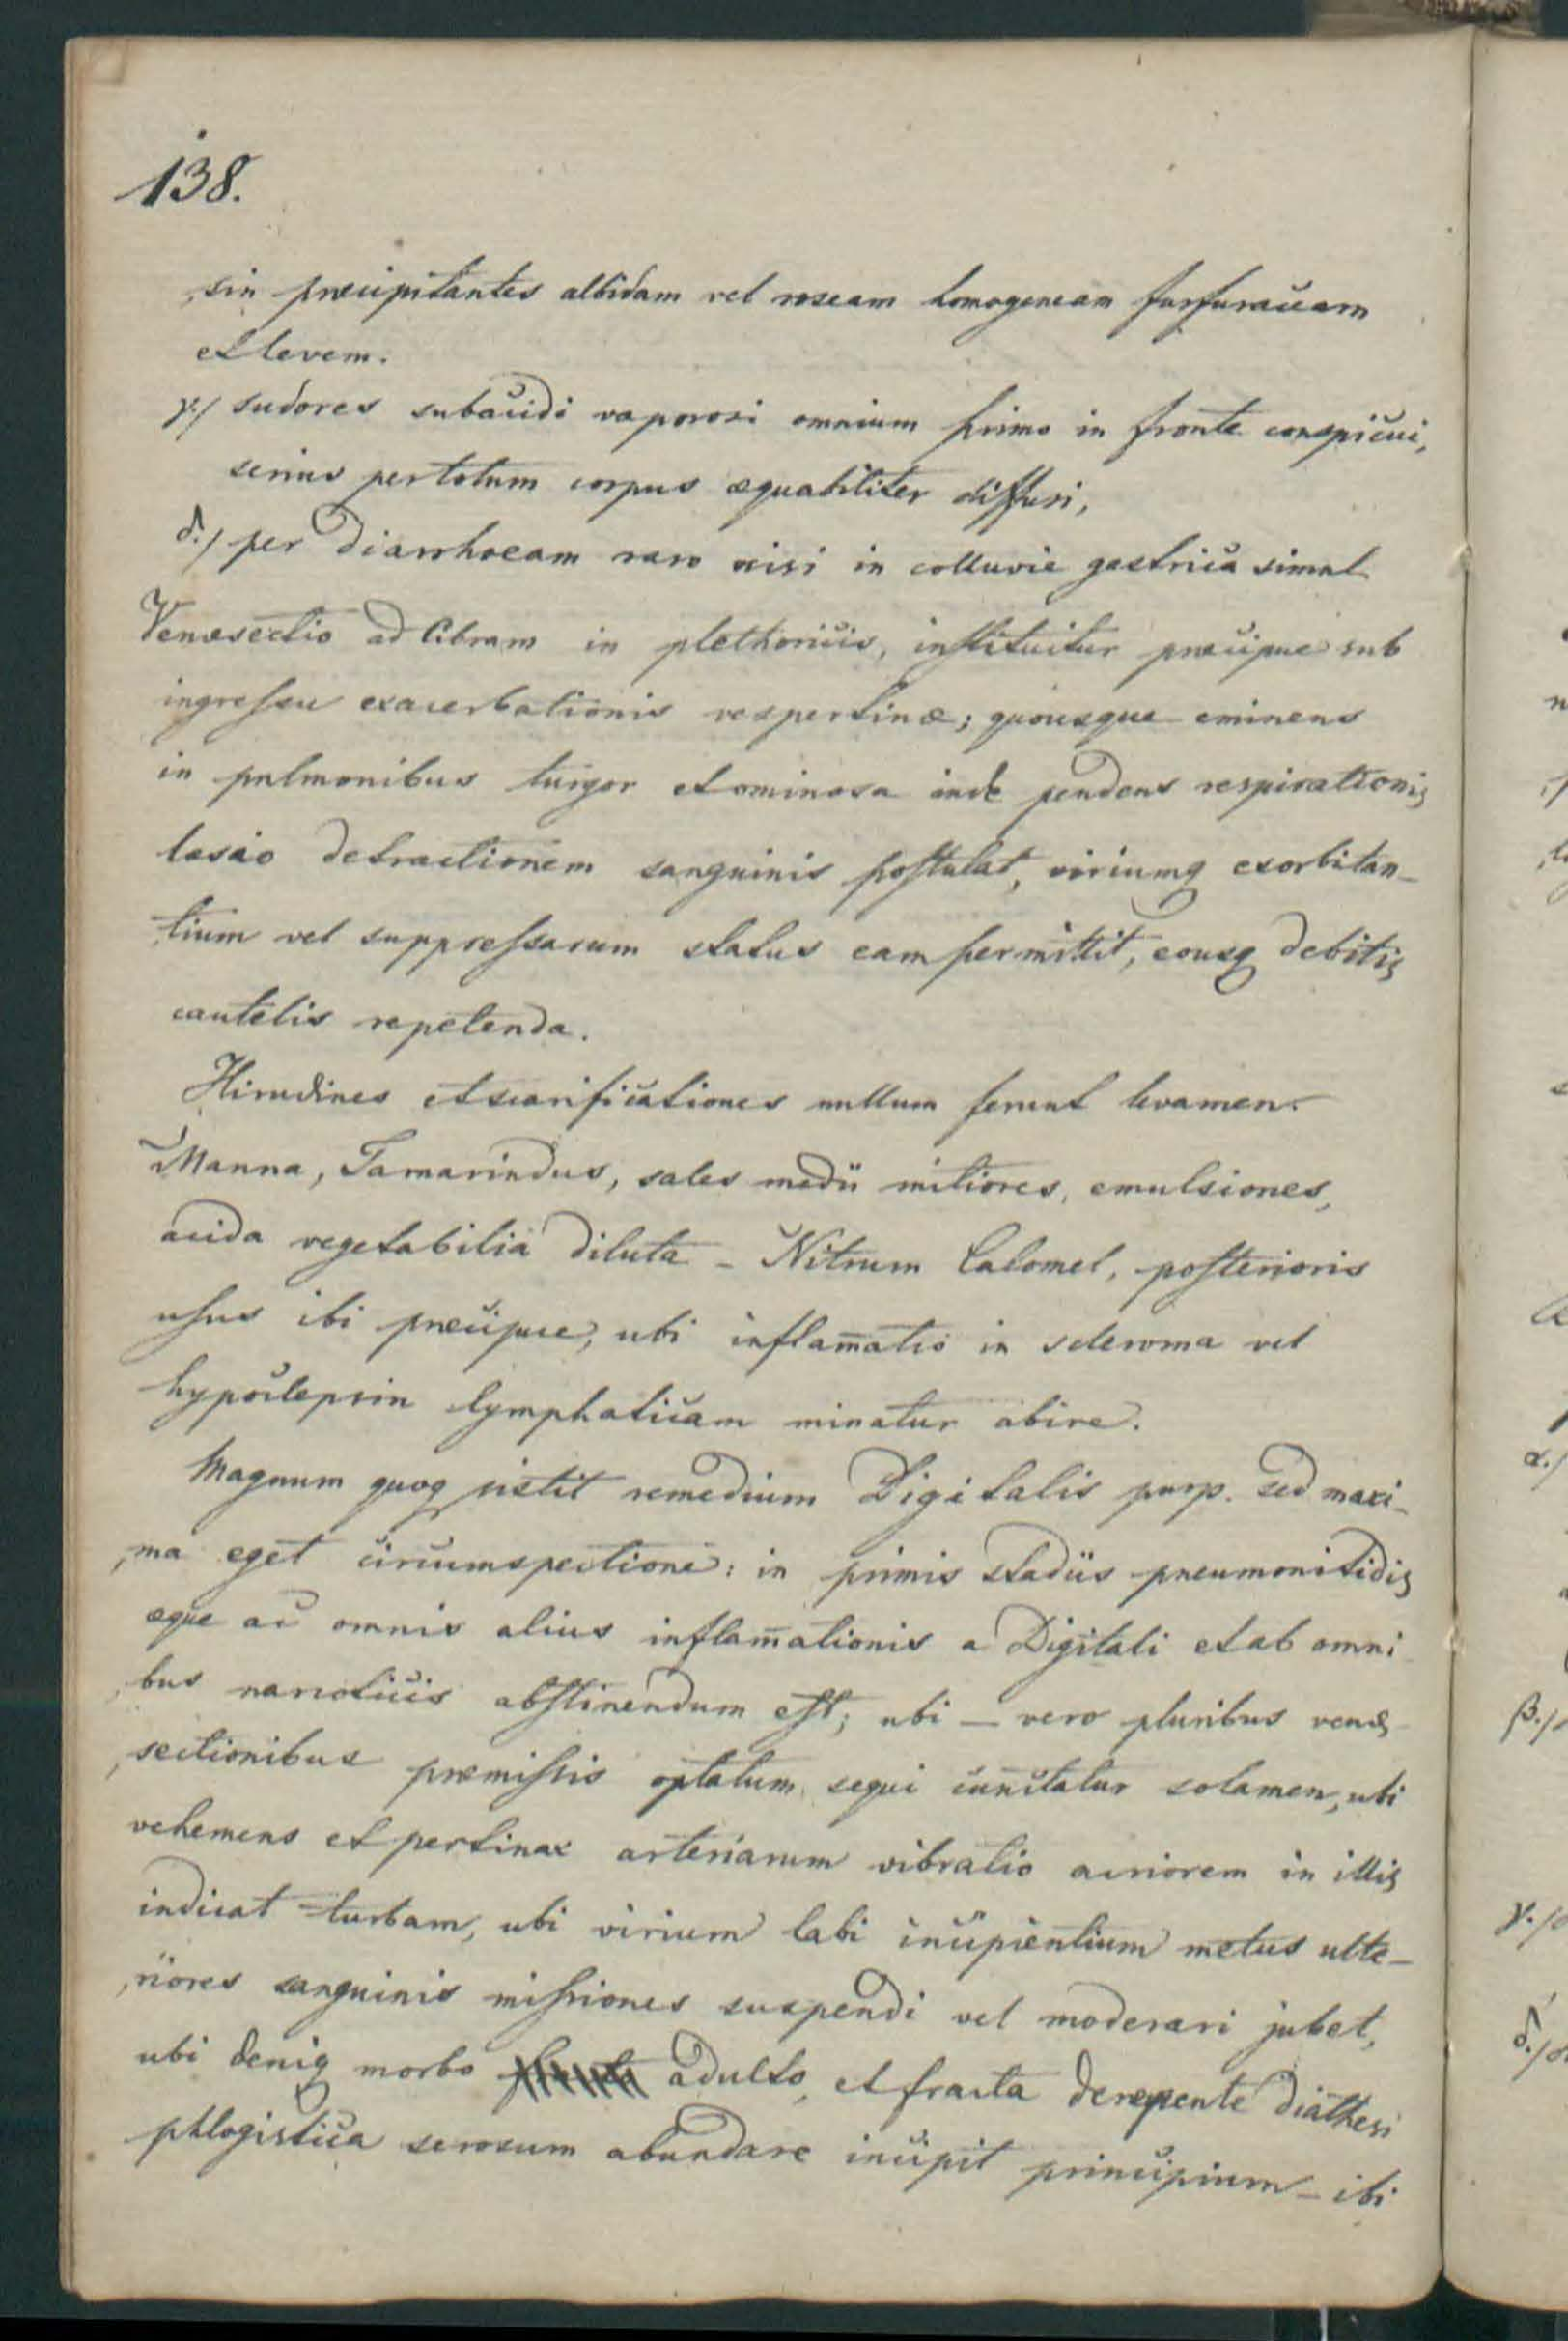 138.
sin præcipitantes albidam vel roseam homogeneam furfuraceam
et levem.
γ./ sudores subacidi vaporosi omnium primo in fronte conspicui,
serius per totum corpus æquabiliter diffusi,
δ./ per Diarrhoeam raro nisi in colluvie gastrica simul
Venæsectio ad libram in plethoricis, instituitur præcipue sub
ingressu exacerbationis vespertinæ; quousque eminens
in pulmonibus turgor et ominosa inde pendens respirationis
læsio detractionem sanguinis postulat, viriumq exorbitan-
tium vel suppressarum status eam permittit, eousq debitis
cautelis repetenda.
Hirudines et scarificationes nullum ferunt levamen.
Manna, Tamarindus, sales medii mitiores, emulsiones,
acida vegetabilia diluta - Nitrum Calomel, posterioris
usus ibi præcipue, ubi inflam̄atio in scleroma vel
hypoclepsin lymphaticam minatur abire.
Magnum quoq sistit remedium Digitalis purp. sed maxi-
ma eget circumspectione: in primis stadiis pneumonitidis
æque ac omnis alius inflam̄ationis a Digitali et ab omni
bus narcoticis abstinendum est; ubi - vero pluribus venæ-
sectionibus præmissis optatum sequi cunctatur solamen, ubi
vehemens et pertinax arteriarum vibratio acriorem in illis
indicat turbam, ubi virium labi incipientium metus ulte-
riores sanguinis missiones suspendi vel moderari jubet,
ubi deniq morbo adulto, et fracta derepente diathesi
phlogistica serosum abundare incipit principium - ibi